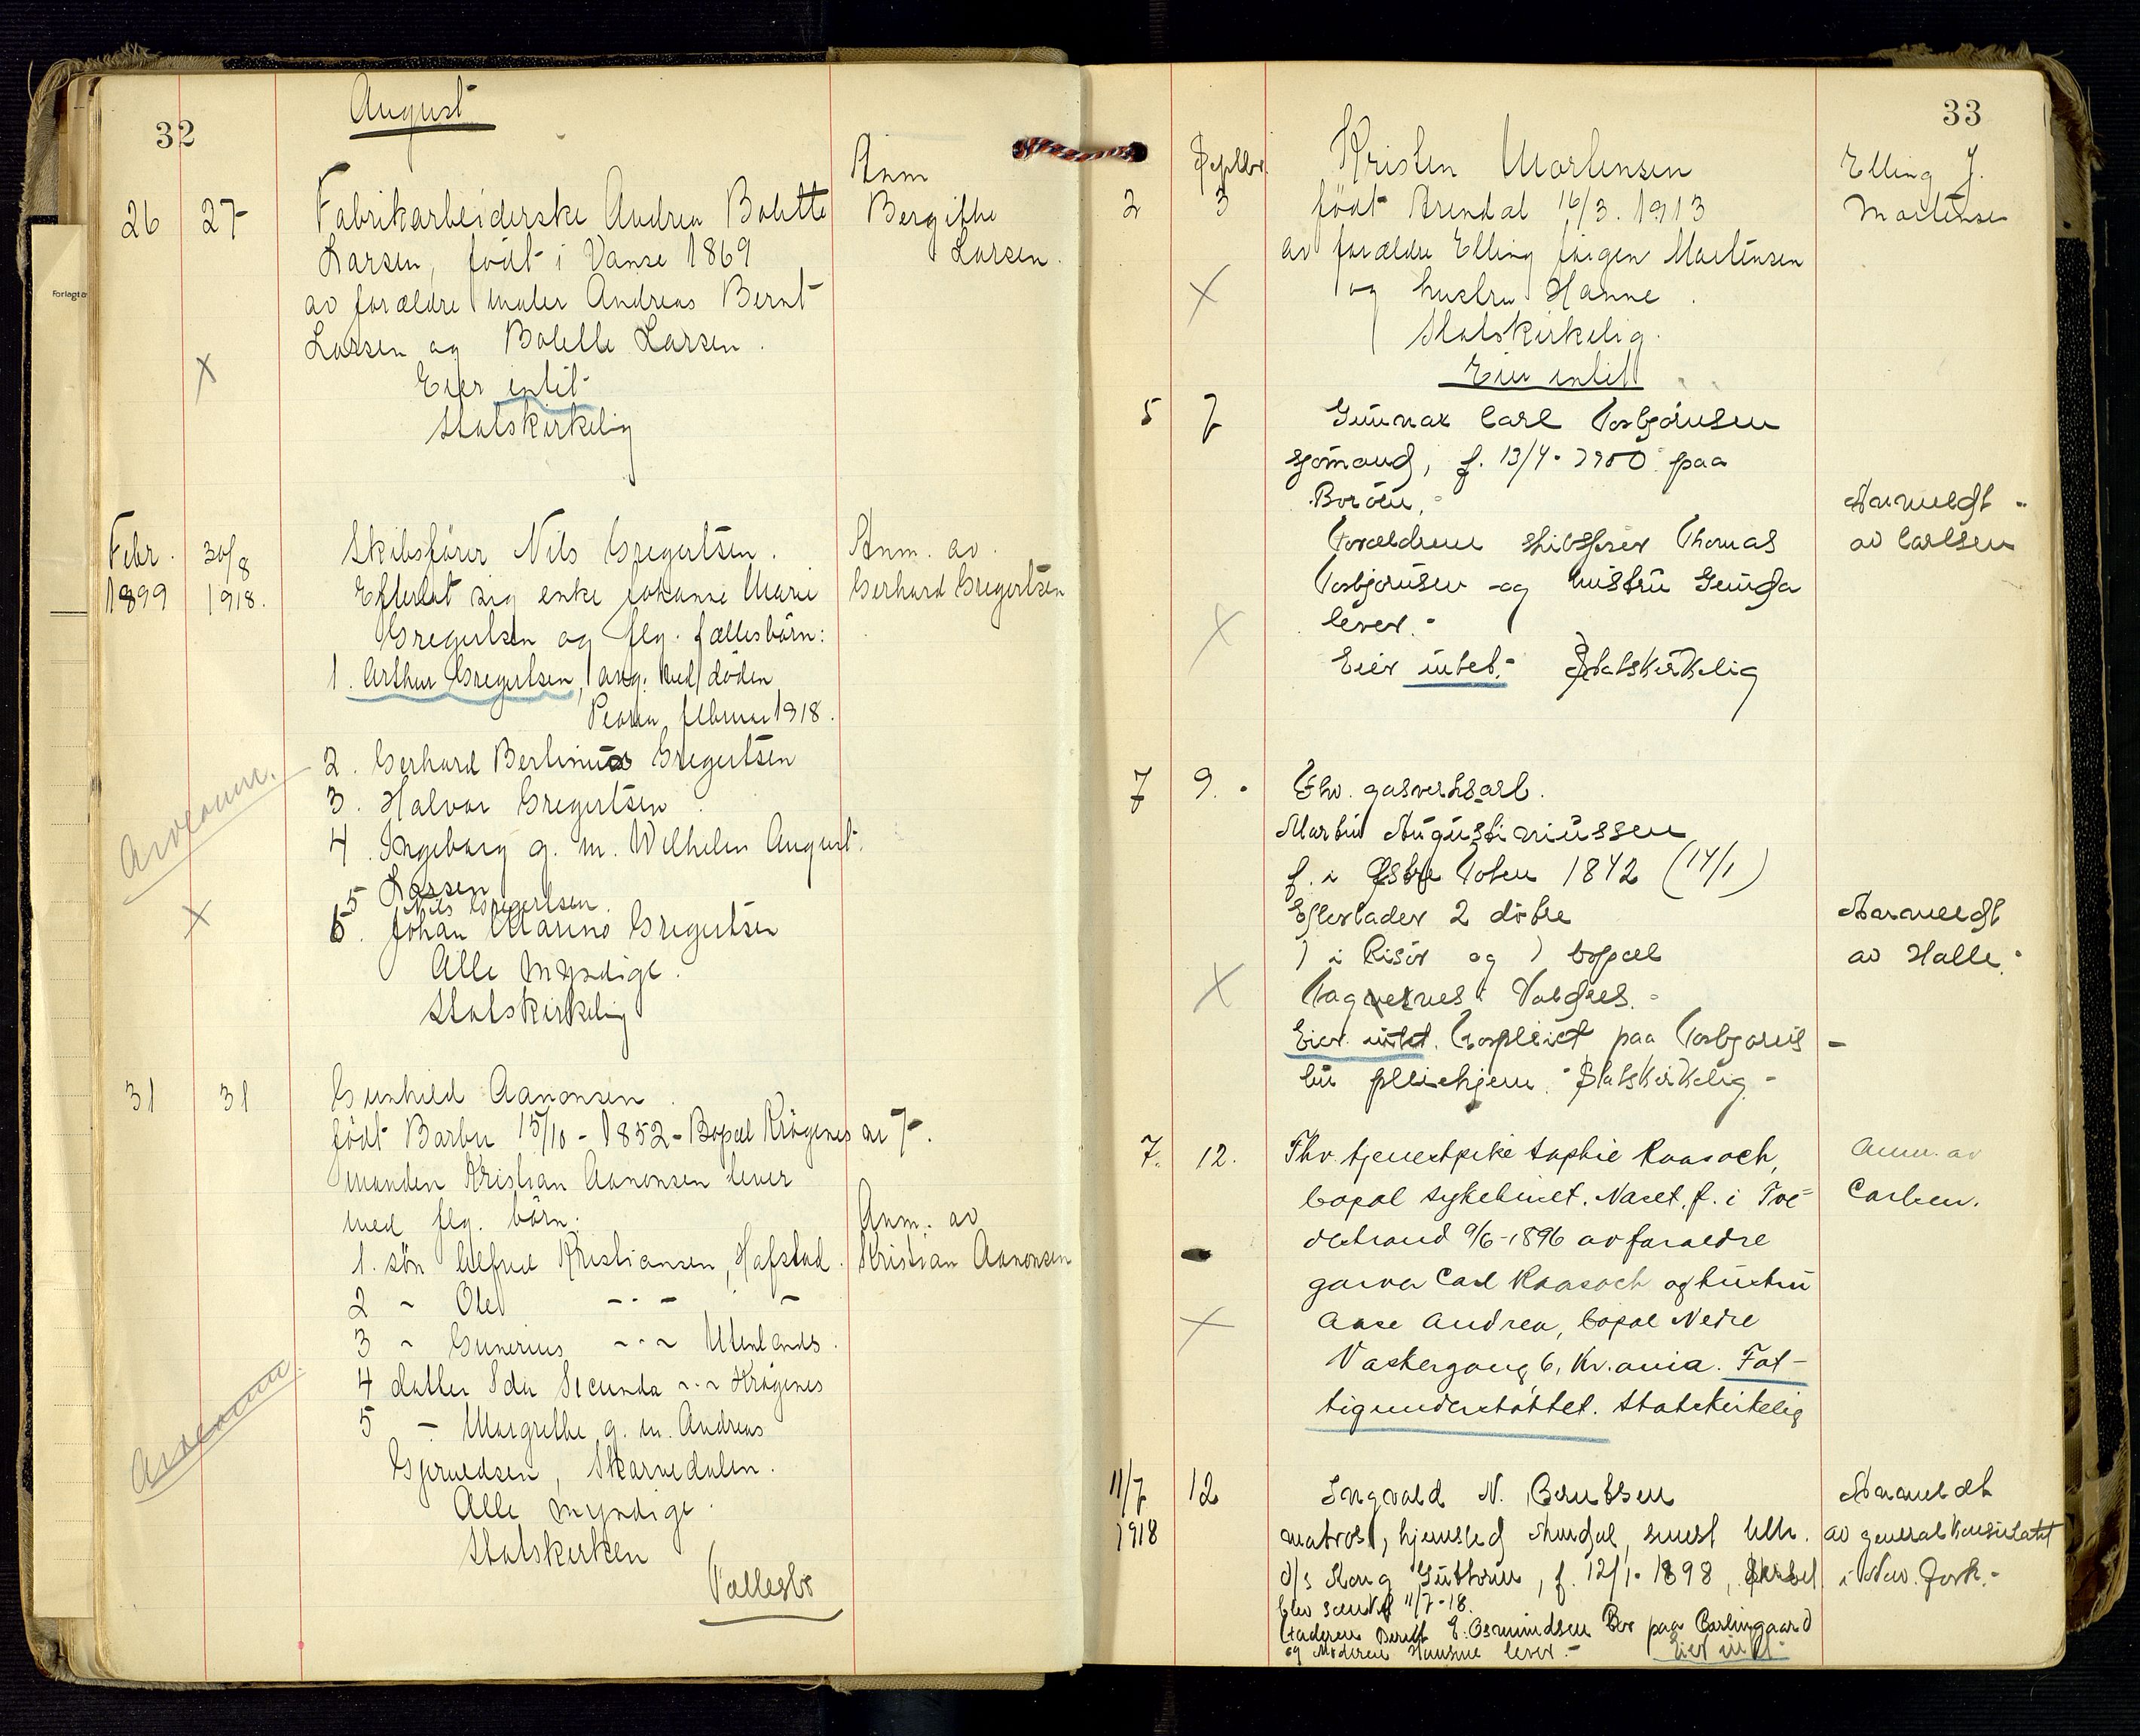 32
August
Anm
26 27 Fabrikarbeiderske Andrea Bolette Bergithe
Larsen, født i Vanse 1869 Larsen.
av forældre maler Andreas Bernt
Larsen og Bolette Larsen.
Eier intet
Statskirkelig
Febr. 30/8 Skibsfører Nils Gregertsen. Anm. av.
1899 1918. Efterlot sig enke Johanne Marie Gerhard Gregertsen
Gregertsen og flg. fællesbørn:
1. Arthur Gregertsen, ang. ved døden
februar 1918.
2. Gerhard Bertinius Gregertsen
3. Halvor Gregertsen
4. Ingeborg g. m. Wilhelm August
Larsen
5 Nils Gregertsen.
6. Johan Marino Gregertsen
Alle myndige.
Statskirkelig
Arveanm.
31 31 Gunhild Aanonsen.
født Barbu 15/10 - 1852 - Bopæl Krøgenes nr 7.
manden Kristian Aanonsen lever
med flg. børn: Anm. av
1. søn Alfred Kristiansen, Hafstad. Kristian Aanonsen
2 ~ Ole - - - ~
3 ~ Gunerius - - ~ Utenlands.
4 datter Ida Secunda ~ - ~ Krøgenes
5 - Margrethe g. m. Andreas
Gjeruldsen, Skarvedalen.
Alle myndige.
Statskirken
Arveanm.
Vallesbr
33
Septbr. Kristen Martensen Elling J.
2 3 født Arendal 16/3. 1913 Martensen
av forældre Elling Jørgen Martensen
og hustru Hanne.
Statskirkelig.
Eier intet
5 7 Gunnar Carl Torbjørnsen
sjømand, f. 13/4. 1900 paa
Borøen. - Anmeldt -
Forældrene skibsfører Thomas av Carlsen
Torbjørnsen og hustru Gunda
lever. -
Eier intet. - Statskirkelig
7 9. Fhv. gasverksarb.
Martin Augustiniussen
f. i Østre Toten 1842 (14/1)
Efterlader 2 døtre Anmeldt
1 i Risør og 1 bopæl av Halle.
Fagernes i Valdres. -
Eier intet. Forpleiet paa Torbjørns
bu pleiehjem. Statskirkelig -
7. 12. Fhv. tjenestpike Sophie Raasoch, Anm. av
bopæl sykehuset. Naret. f. i Tve= Carlsen.
destrand 9/6-1896 av foraldre
garver Carl Raasoch og hustru
Aase Andrea, bopæl Nedre
Vaskergang 6, Kr.ania. Fat-
tigunderstøttet. Statskirkelig
11/7 12 Ingvald N. Berntsen Anmeldt
1918 matros, hjemsted Arendal, senest av generalkonsulatet
d/s Kong Guttorm, f. 12/1. 1898, i New. York. -
11/7-18.
Faderen Berndt E. Osmundsen Bor paa
og Moderen lever. - Eier intet.